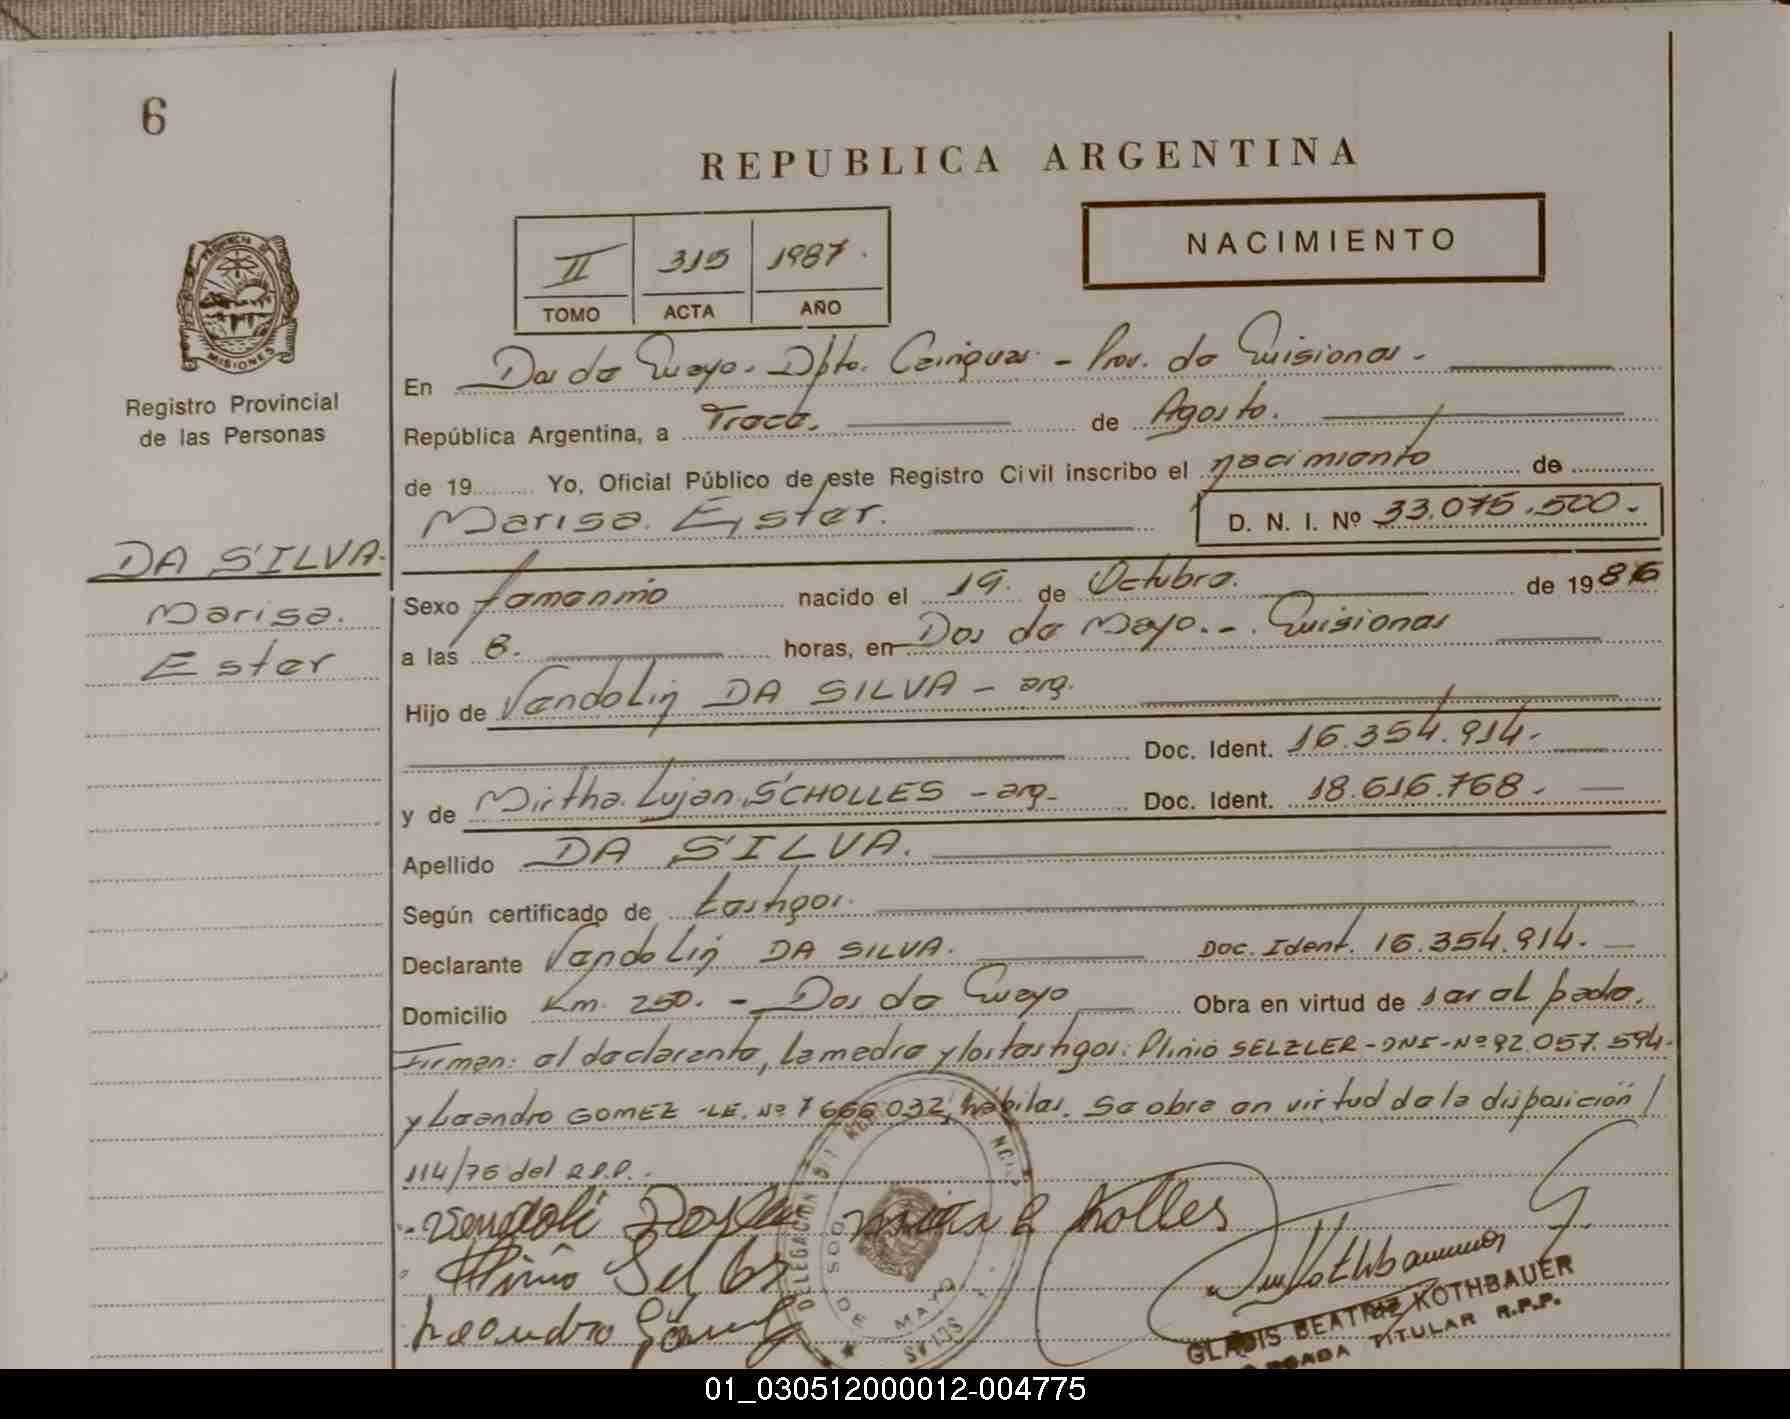 6
REPUBLICA ARGENTINA
II 315 1987.
TOMO ACTA AÑO
NACIMIENTO
PROVINCIA DE MISIONES
Registro Provincial
de las Personas
En Dos de Mayo. Dpto. Cainguas - Prov. de Misiones.
República Argentina, a Trece. de Agosto.
de 19........ Yo, Oficial Público de este Registro Civil inscribo el nacimiento de
Marisa. Ester. D. N. I. Nº 33.075.500.
DA SILVA.
Marisa.
Ester
Sexo femenino nacido el 19. de Octubre. de 1986
a las 8. horas, en Dos de Mayo. - Misiones
Hijo de Vendolin DA SILVA - arg.
Doc. Ident. 16.354.914.
y de Mirtha Lujan SCHOLLES - arg- Doc. Ident. 18.616.768.
Apellido DA SILVA.
Según certificado de testigos.
Declarante Vendolin DA SILVA. Doc. Ident. 16.354.914.
Domicilio Km. 250. - Dos de Mayo Obra en virtud de ser el padre.
Firman: el declarante, la madre y los testigos: Plinio SELZLER - DNI - Nº 92.057.594-
y Leandro GOMEZ -LE. Nº 7666032, hábiles. Se obra en virtud de la disposición /
114/76 del R.P.P.-
DELEGACION
DOS DE MAYO
GLADIS BEATRIZ KOTHBAUER
TITULAR R.P.P.
01_030512000012-004775